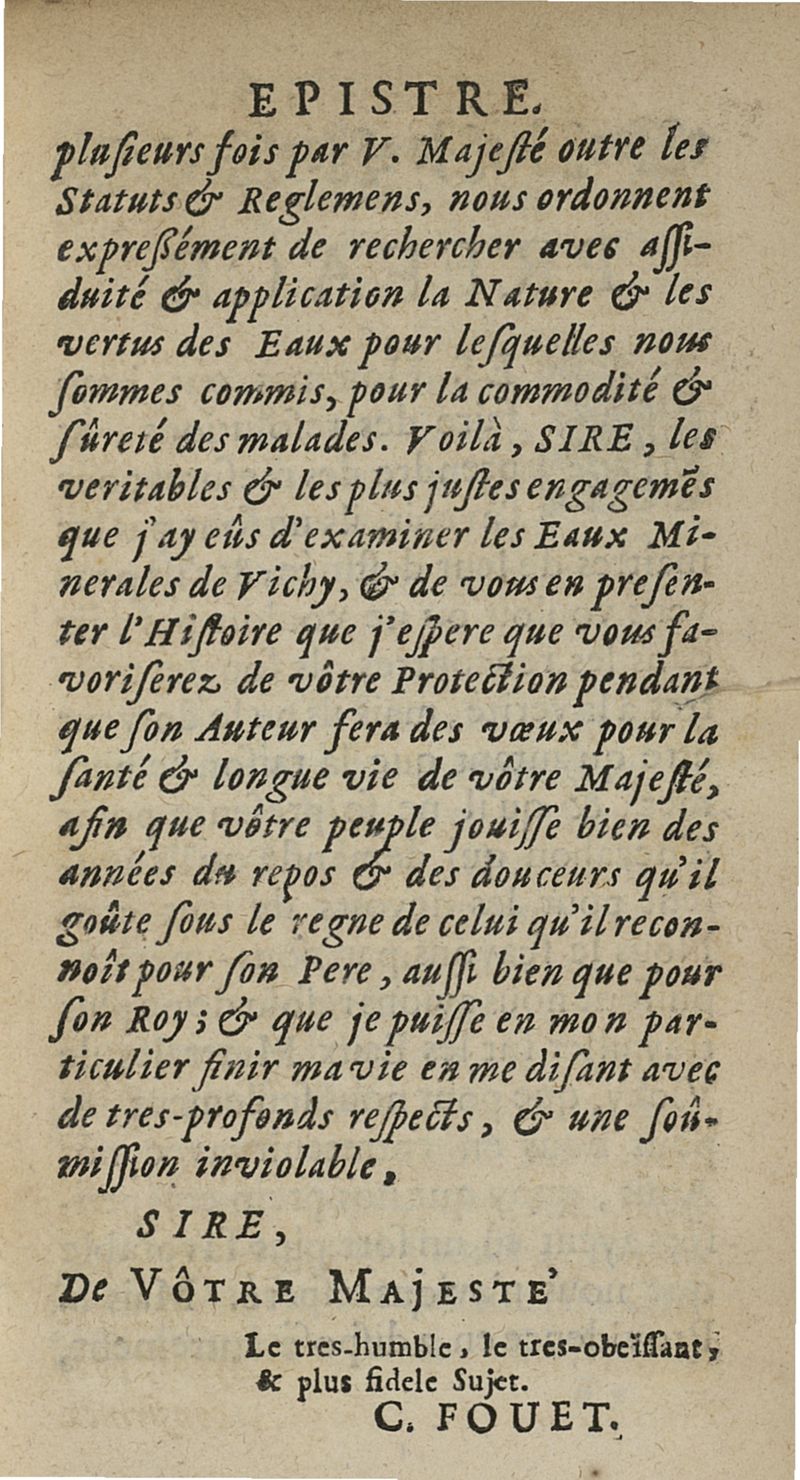 EPISTRE.
pluſieurs fois par V. Majeſté outre les
Statuts & Reglemens, nous ordonnent
expreßément de rechercher avec aſſi-
duité & application la Nature & les
vertus des Eaux pour leſquelles nous
ſommes commis, pour la commodité &
ſûreté des malades. Voilà, SIRE, les
veritables & les plus juſtes engagemẽs
que j'ay eûs d'examiner les Eaux Mi-
nerales de Vichy, & de vous en preſen-
ter l'Hiſtoire que j'eſpere que vous fa-
voriſerez de vôtre Protection pendant
que ſon Auteur fera des vœux pour la
ſanté & longue vie de vôtre Majeſté,
afin que vôtre peuple jouiſſe bien des
années du repos & des douceurs qu'il
goûte ſous le regne de celui qu'il recon-
noît pour ſon Pere, auſſi bien que pour
ſon Roy; & que je puiſſe en mon par-
ticulier finir ma vie en me diſant avec
de tres-profonds reſpects, & une ſoû-
miſſion inviolable,
SIRE,
De VÔTRE MAJESTE'
Le tres-humble, le tres-obeïſſant,
& plus fidele Sujet.
C. FOUET.